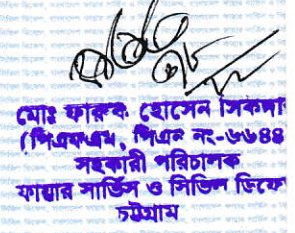 মোঃ ফারুক হোসেন সিকদা
(পিএফএম, পিএন নং-৬৬৪৪
সহকারী পরিচালক
ফায়ার সার্ভিস ও সিভিল ডিফে
চট্টগ্রাম